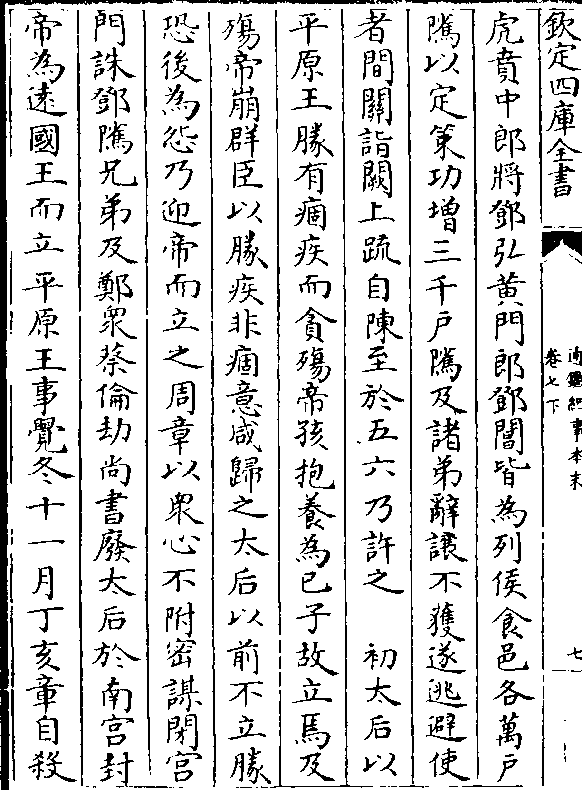 欽定四庫全書
通鑑紀事本末
卷七下
七
虎賁中郎將鄧弘黄門郎鄧閶皆為列侯食邑各萬户
隲以定策功增三千户隲及諸弟辭讓不獲遂逃避使
者間關詣闕上疏自陳至於五六乃許之　初太后以
平原王勝有痼疾而貪殤帝孩抱養為已子故立焉及
殤帝崩群臣以勝疾非痼意咸歸之太后以前不立勝
恐後為怨乃迎帝而立之周章以衆心不附密謀閉宫
門誅鄧隲兄弟及鄭衆蔡倫劫尚書廢太后於南宫封
帝為逺國王而立平原王事覺冬十一月丁亥章自殺